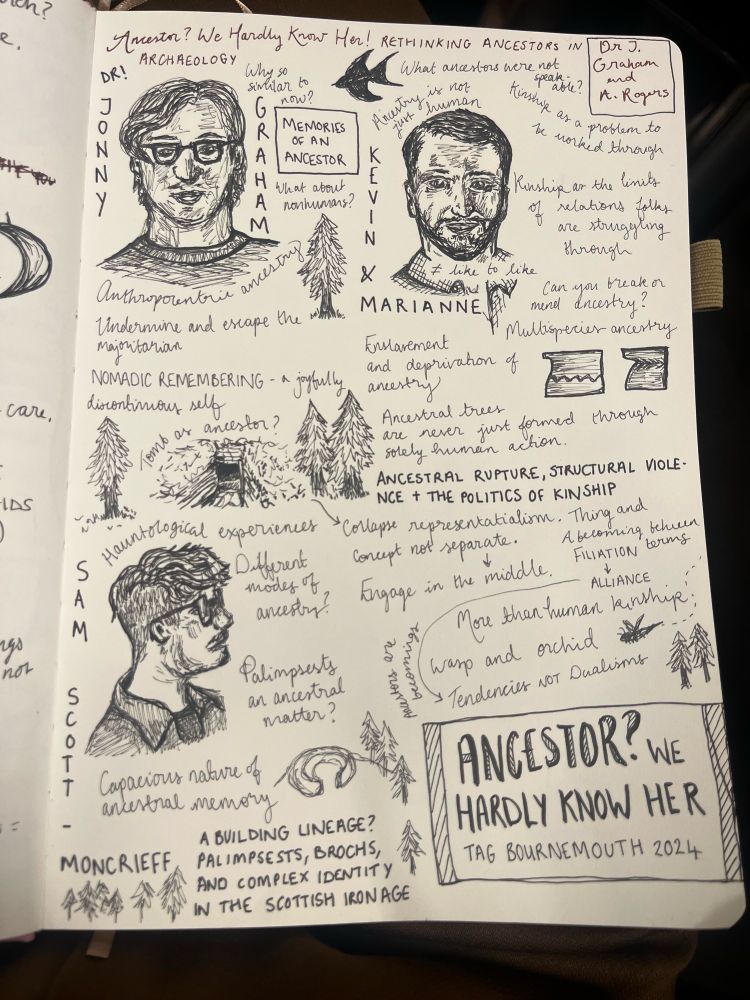 Ancestor? We Hardly Know Her! RETHINKING ANCESTORS IN
ARCHAEOLOGY
Dr J.
Graham
and
A. Rogers
DR!
JONNY
GRAHAM
Why so
similar to
now?
MEMORIES
OF AN
ANCESTOR
What about
nonhumans?
Anthropocentric ancestry
Undermine and escape the
majoritarian
NOMADIC REMEMBERING - a joyfully
discontinuous self
Tomb as ancestor?
Hauntological experiences
What ancestors were not
speak-
able?
Ancestry is not
just human
Kinship as a problem to
be worked through
KEVIN
&
MARIANNE
Kinship as the limits
of relations folks
are struggling
through
≠ like to like
Can you break or
mend ancestry?
Multispecies ancestry
Enslavement
and deprivation of
ancestry
Ancestral trees
are never just formed through
solely human action.
ANCESTRAL RUPTURE, STRUCTURAL VIOLE-
NCE + THE POLITICS OF KINSHIP
Collapse representatialism. Thing and
concept not separate.
A becoming between
terms
FILIATION
ALLIANCE
Engage in the middle.
More than human kinship.
Wasp and orchid
Tendencies NOT Dualisms
are
becomings
SAM
SCOTT-
MONCRIEFF
Different
modes of
ancestry?
Palimpsests
an ancestral
matter?
Capacious nature of
ancestral memory
A BUILDING LINEAGE?
PALIMPSESTS, BROCHS,
AND COMPLEX IDENTITY
IN THE SCOTTISH IRON AGE
ANCESTOR? WE
HARDLY KNOW HER
TAG BOURNEMOUTH 2024
care,
not